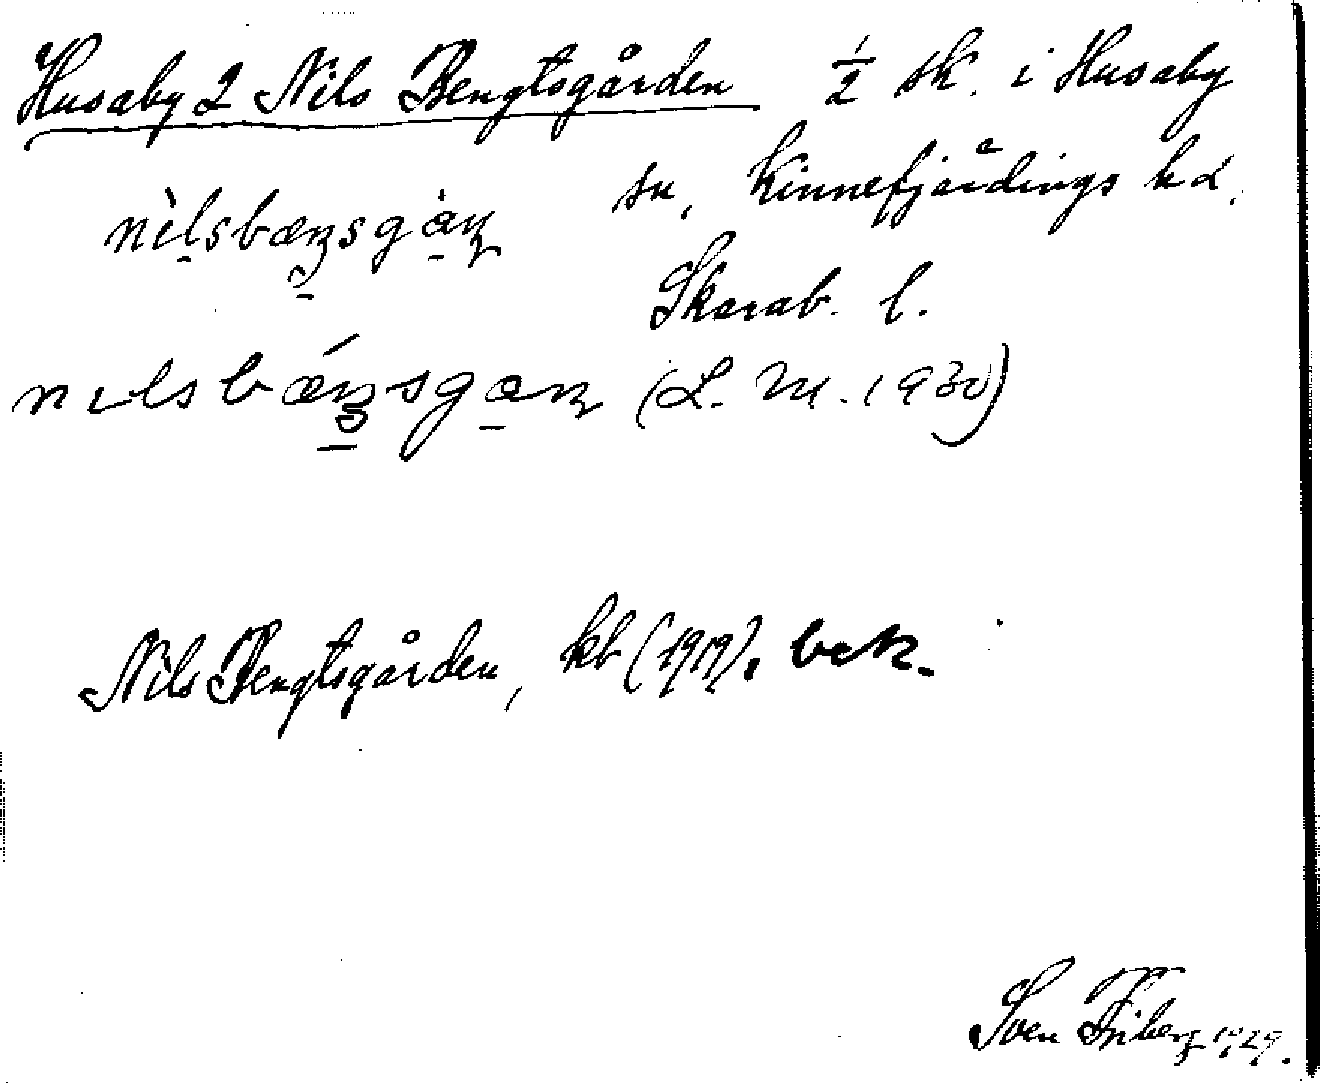 Husaby 2 Nils Bengtsgården ½ sk. i Husaby
sn, Kinnefjärdings hd.
Skarab. l.
(L. M. 1930)
Nils Bengtsgården, kb (1919), bek.
Sven Friberg 1929.